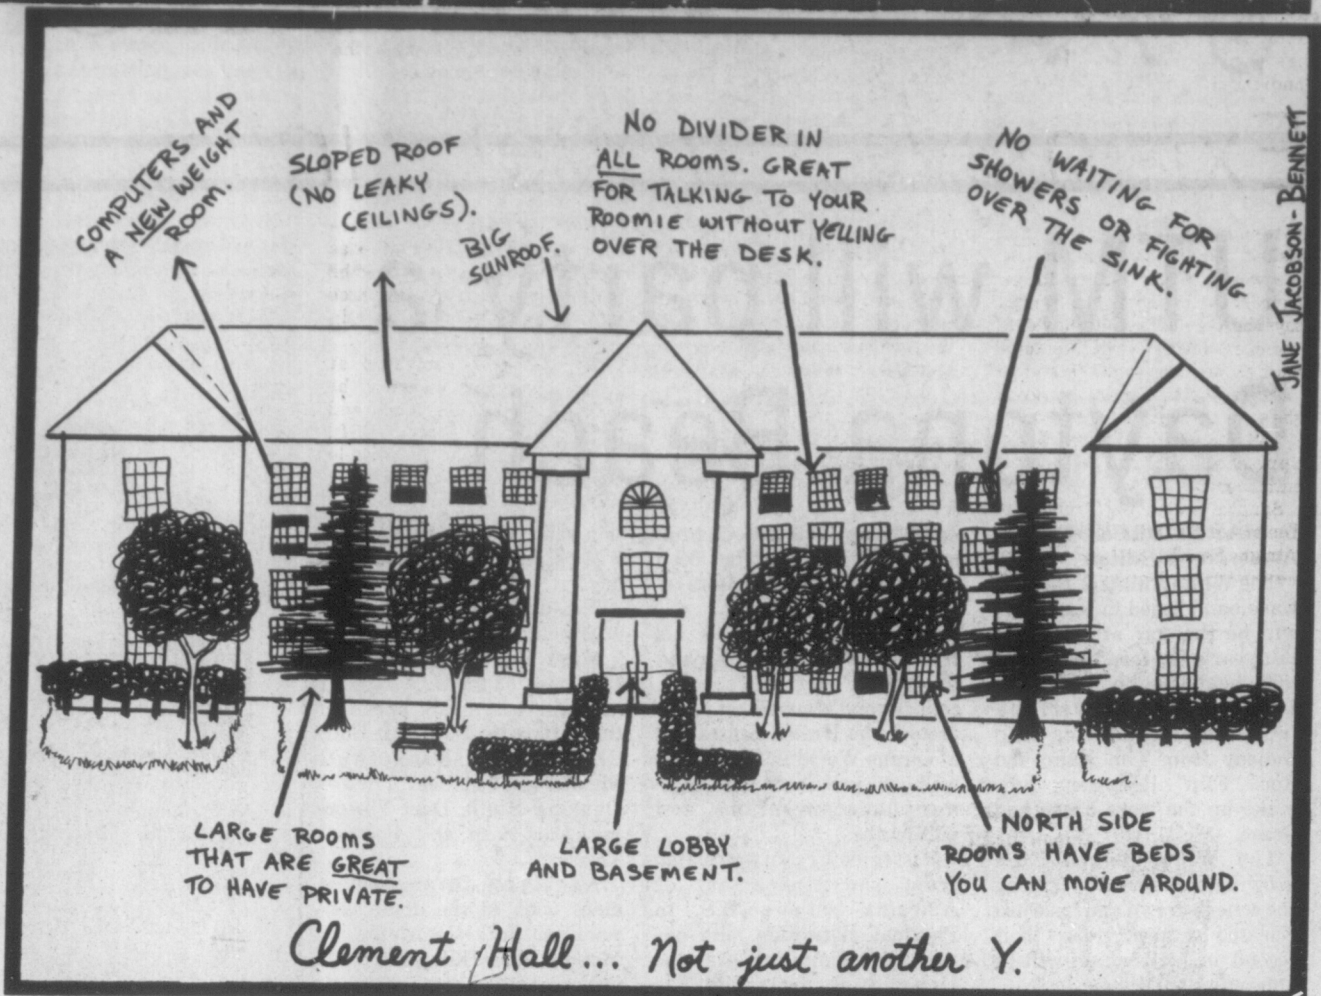 COMPUTERS AND
A NEW WEIGHT
ROOM.
SLOPED ROOF
(NO LEAKY
CEILINGS).
BIG
SUNROOF.
NO DIVIDER IN
ALL ROOMS. GREAT
FOR TALKING TO YOUR
ROOMIE WITHOUT YELLING
OVER THE DESK.
NO WAITING FOR
SHOWERS OR FIGHTING
OVER THE SINK.
JANE JACOBSON-BENNETT
LARGE ROOMS
THAT ARE GREAT
TO HAVE PRIVATE.
LARGE LOBBY
AND BASEMENT.
NORTH SIDE
ROOMS HAVE BEDS
YOU CAN MOVE AROUND.
Clement Hall... Not just another Y.